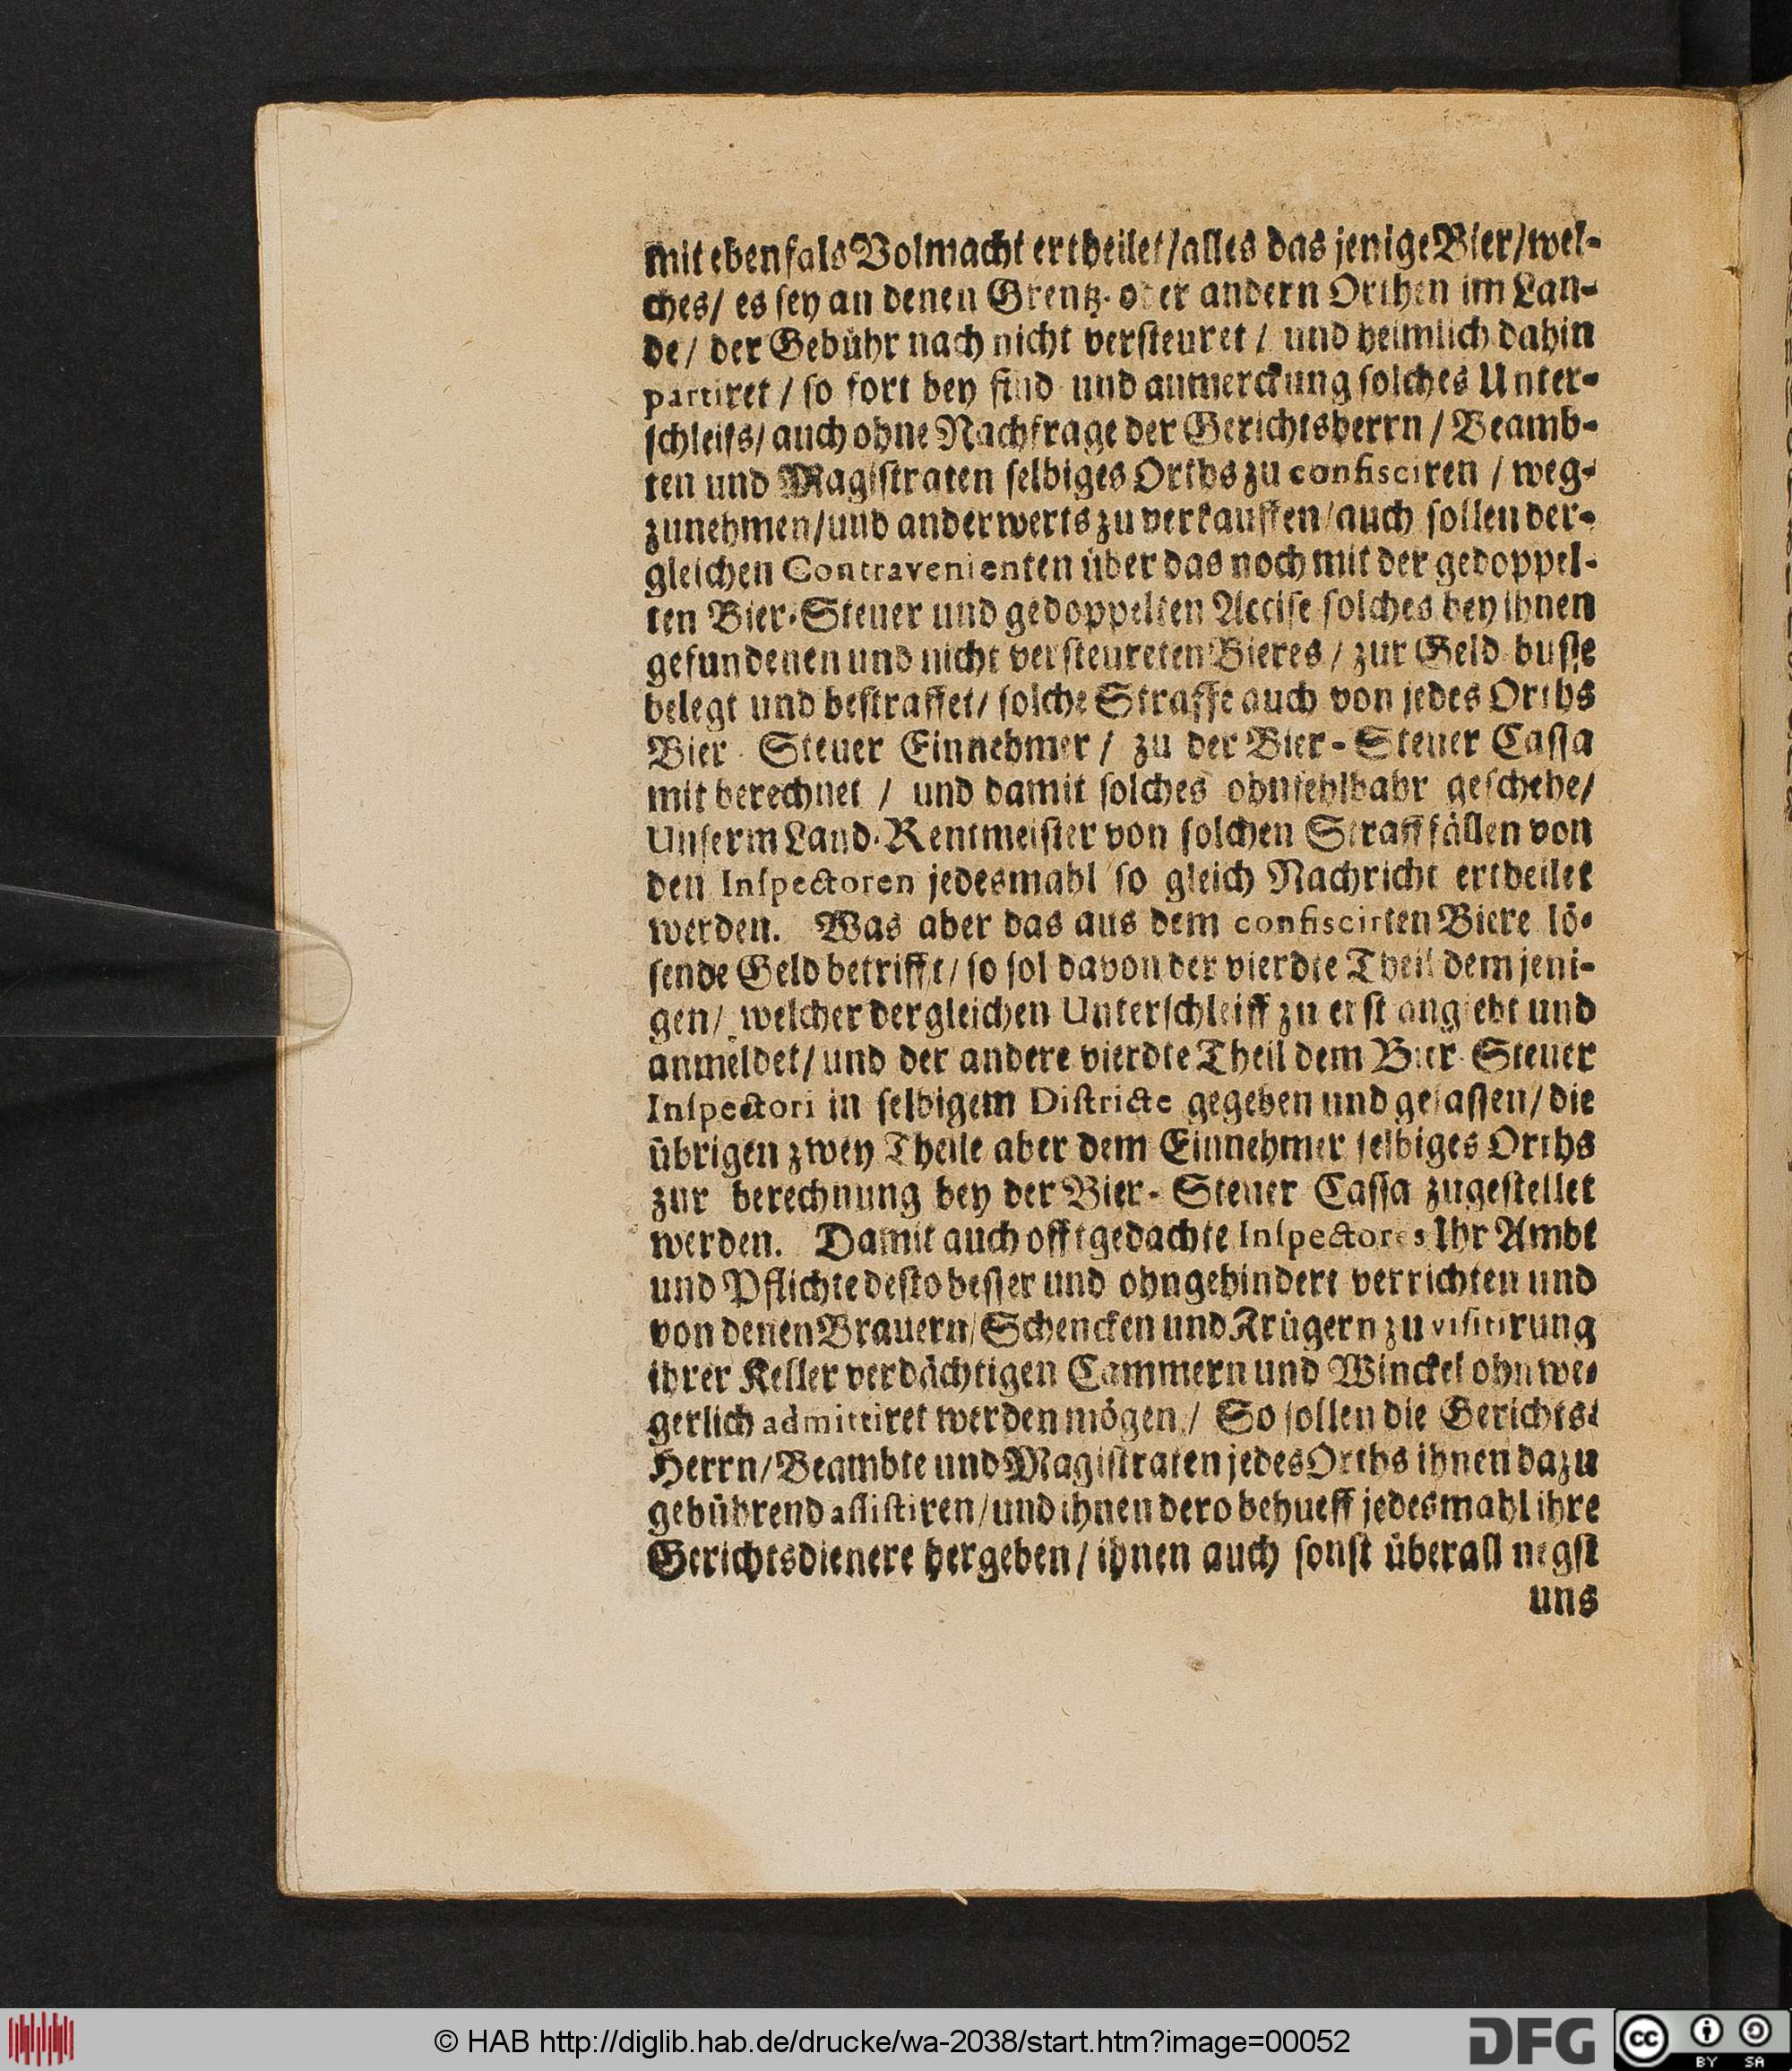 mit ebenfals Volmacht ertheilet/alles das jenige Bier/wel-
ches/ es sey an denen Grentz- oder andern Orthen im Lan-
de/ der Gebühr nach nicht versteuret / und heimlich dahin
partiret / so fort bey find und anmerckung solches Unter-
schleifs/ auch ohne Nachfrage der Gerichtsherrn / Beamb-
ten und Magistraten selbiges Orths zu confisciren / weg-
zunehmen/und anderwerts zu verkauffen/auch sollen der-
gleichen Contravenienten über das noch mit der gedoppel-
ten Bier-Steuer und gedoppelten Accise solches bey ihnen
gefundenen und nicht versteureten Bieres / zur Geld busse
belegt und bestraffet/ solche Straffe auch von jedes Orths
Bier-Steuer Einnehmer / zu der Bier-Steuer Cassa
mit berechnet / und damit solches ohnfehlbahr geschehe/
Unserm Land-Rentmeister von solchen Straffällen von
den Inspectoren jedesmahl so gleich Nachricht ertheilet
werden. Was aber das aus dem confiscirten Biere lö-
sende Geld betrifft/ so sol davon der vierdte Theil dem jeni-
gen/ welcher dergleichen Unterschleiff zu erst angiebt und
anmeldet/ und der andere vierdte Theil dem Bier-Steuer
Inspectori in selbigem Districte gegeben und gelassen/ die
übrigen zwey Theile aber dem Einnehmer selbiges Orths
zur berechnung bey der Bier-Steuer Cassa zugestellet
werden. Damit auch offtgedachte Inspectores Ihr Ambt
und Pflichte desto besser und ohngehindert verrichten und
von denen Brauern/Schencken und Krügern zu visitirung
ihrer Keller verdächtigen Cammern und Winckel ohnwe-
gerlich admittiret werden mögen / So sollen die Gerichts-
Herrn/Beambte und Magistraten jedes Orths ihnen dazu
gebührend assistiren/und ihnen dero behueff jedesmahl ihre
Gerichtsdienere hergeben/ ihnen auch sonst überall negst
uns
© HAB http://diglib.hab.de/drucke/wa-2038/start.htm?image=00052
DFG
cc
BY SA